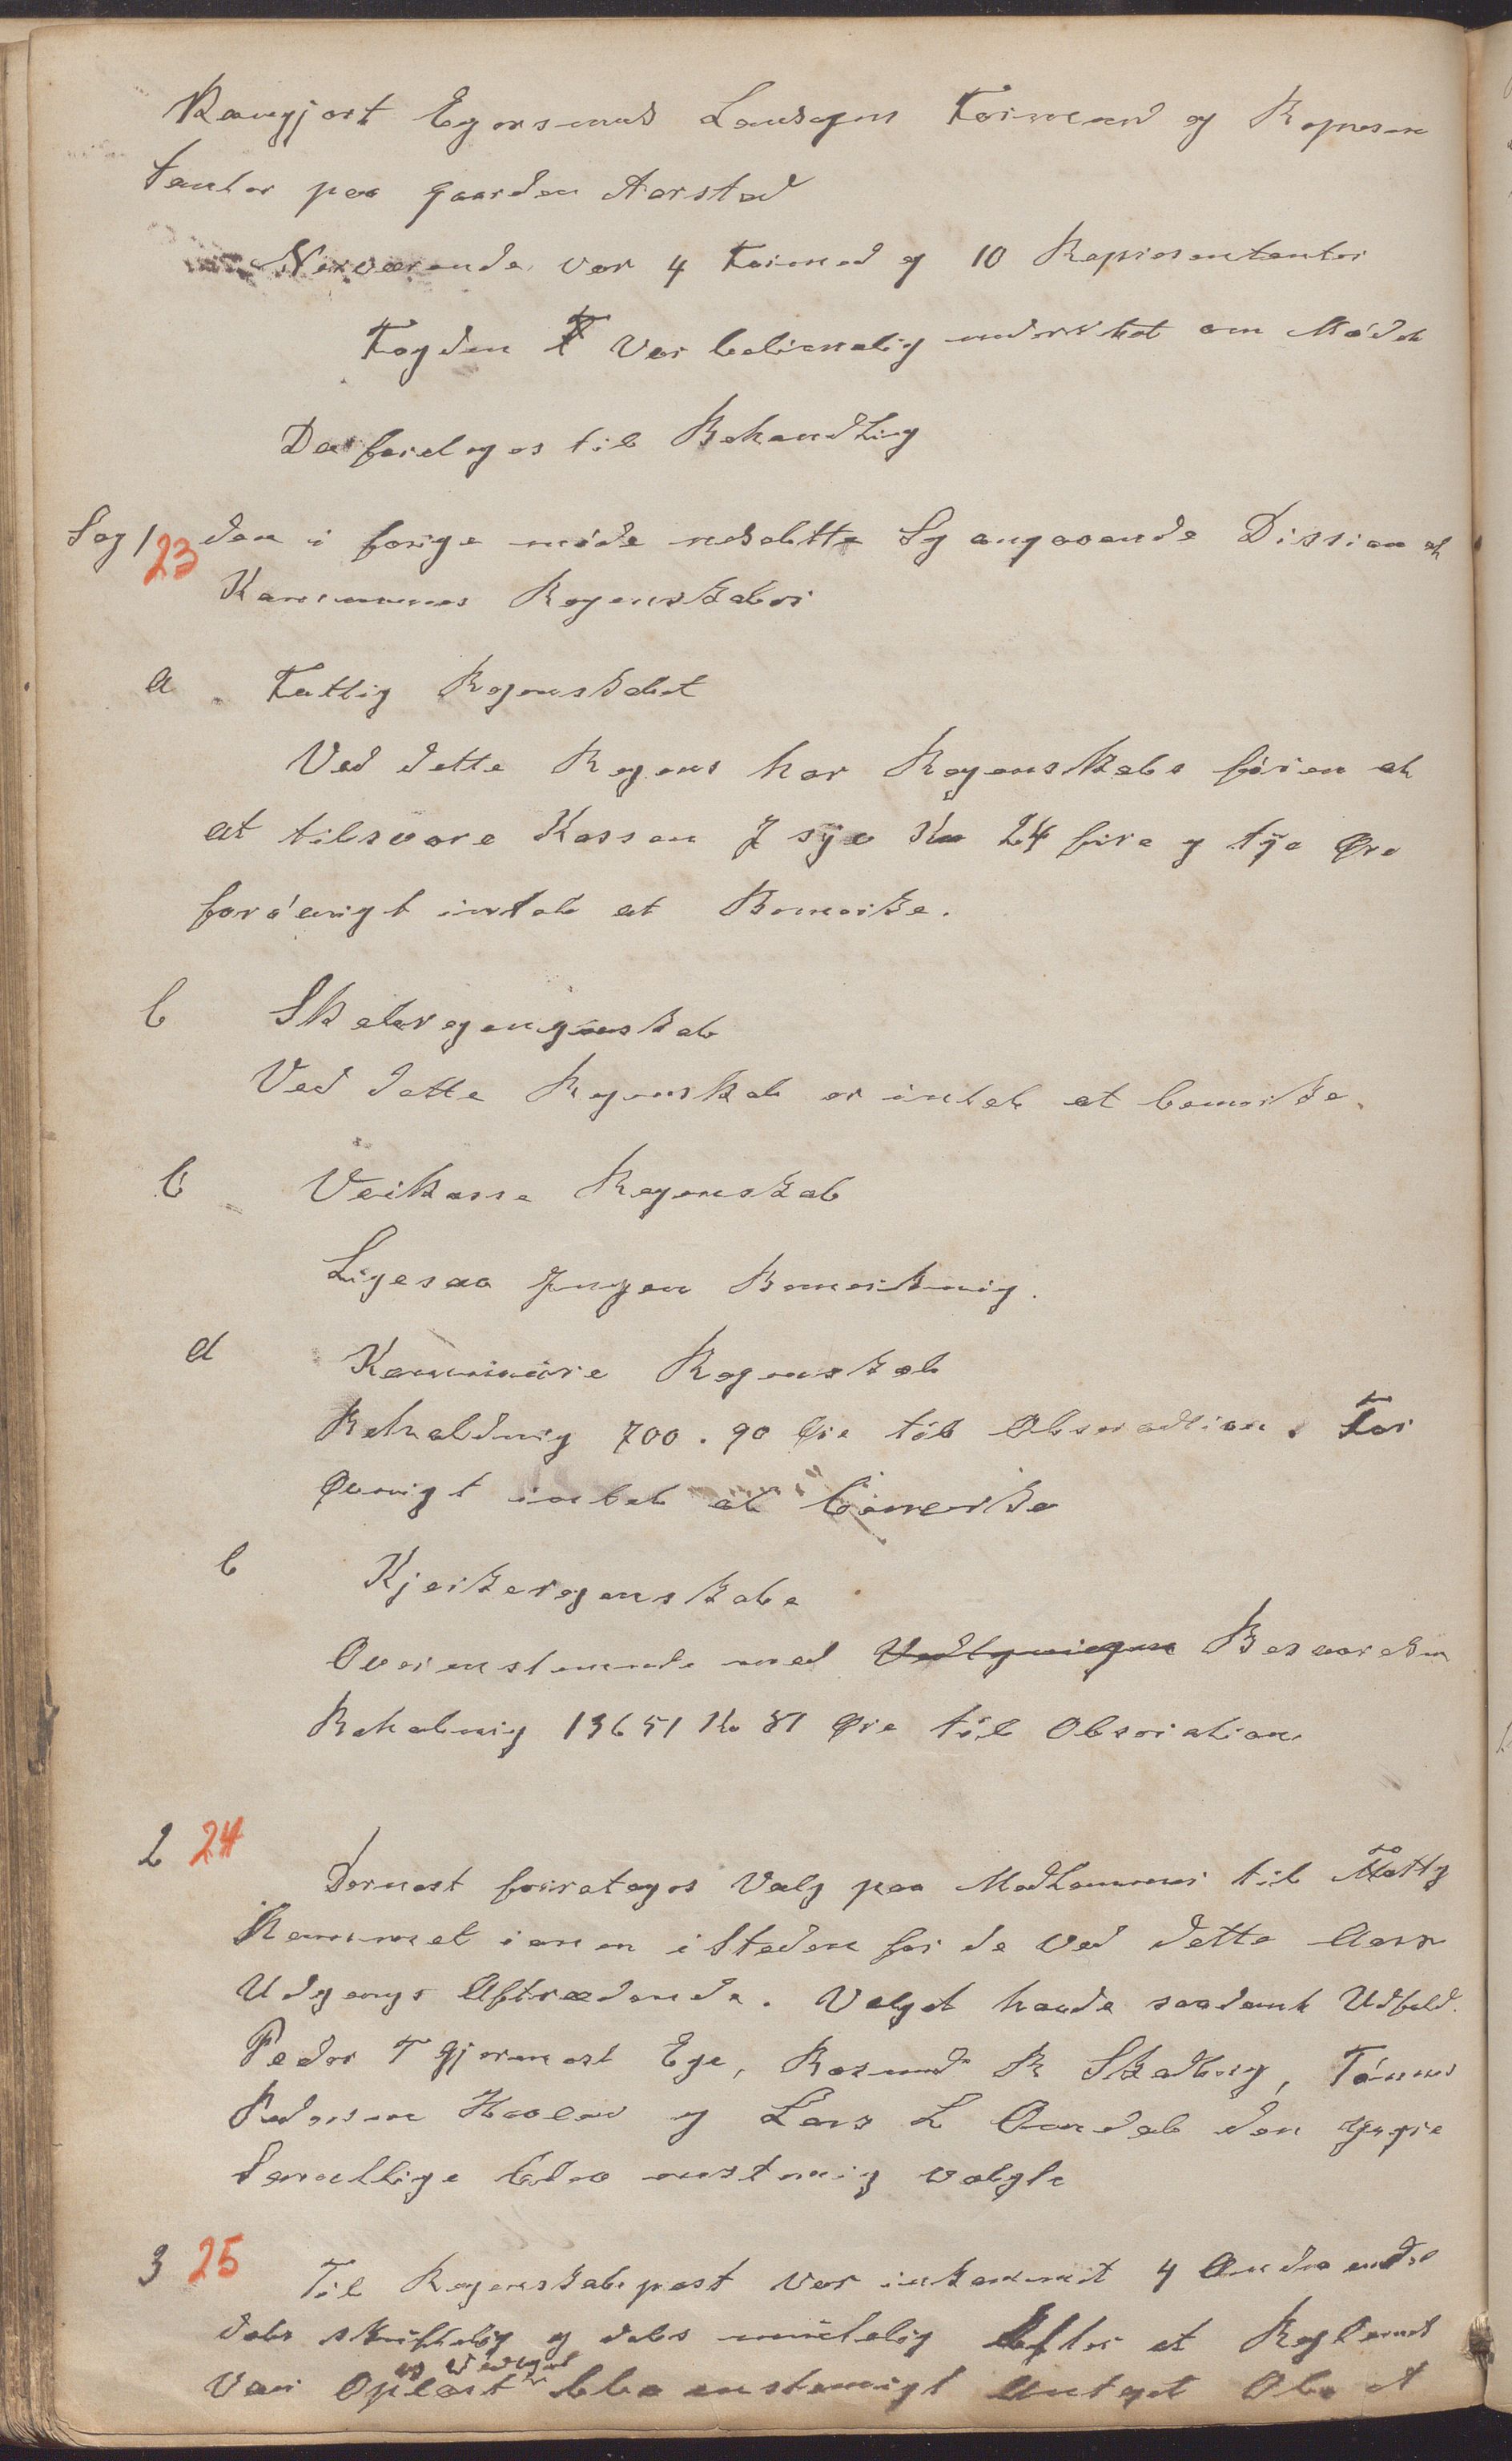 Rengjort Egersunds Landsogns Formend og Represen
tanter paa Gaarden Aarstad
Nerværende var 4 Formed og 10 Representanter
Fogden var betimelig underrettet om Mødet
Da foretoges til Behandling
Sag 1 23 den i forige møde udsatte Sag angaaende Dission af
Kommunes Regenskaber
a Fattig Regenskabet
Ved dette Regens har Regenskabs føren at
at tilsvare Kassen 7 syv Kr 24 fire og tyve Øre
forøvrigt intet at Bemerke.
b Skoleregengenskab
Ved dette Regenskab er intet at bemerke.
c Veikasse Regenskab
Ligesaa Ingen Bemerkning.
d Kommune Regenskab
Beholdning 700.90 Øre til Observadtion. For
Øvrigt intet at Bemerke
e Kjerkeregenskabe
Overenstemende med Besvarelsen
Behalning 13651 Kr 81 Øre til Obseriation
2 24 Dernest foretages Valg paa Medlemmer til Fattig
Kommmet ionen i Steden for de ved dette Aars
Udgangs Aftrædende. Valget havde saadant Udfald.
Peder T Gjermest Ege, Rasmus R Skadberg, Tønnes
Pedersen Haaland og Lars L Omdal den yngre
Samtlige blev enstemig valgte
3 25 Til Regenskabspost var inkommit 4 Andra ender
dels skriftelig og dels mindtelig Efter at Reglement
var Oplæst og vedtaget blev enstemigt Antaget Ole